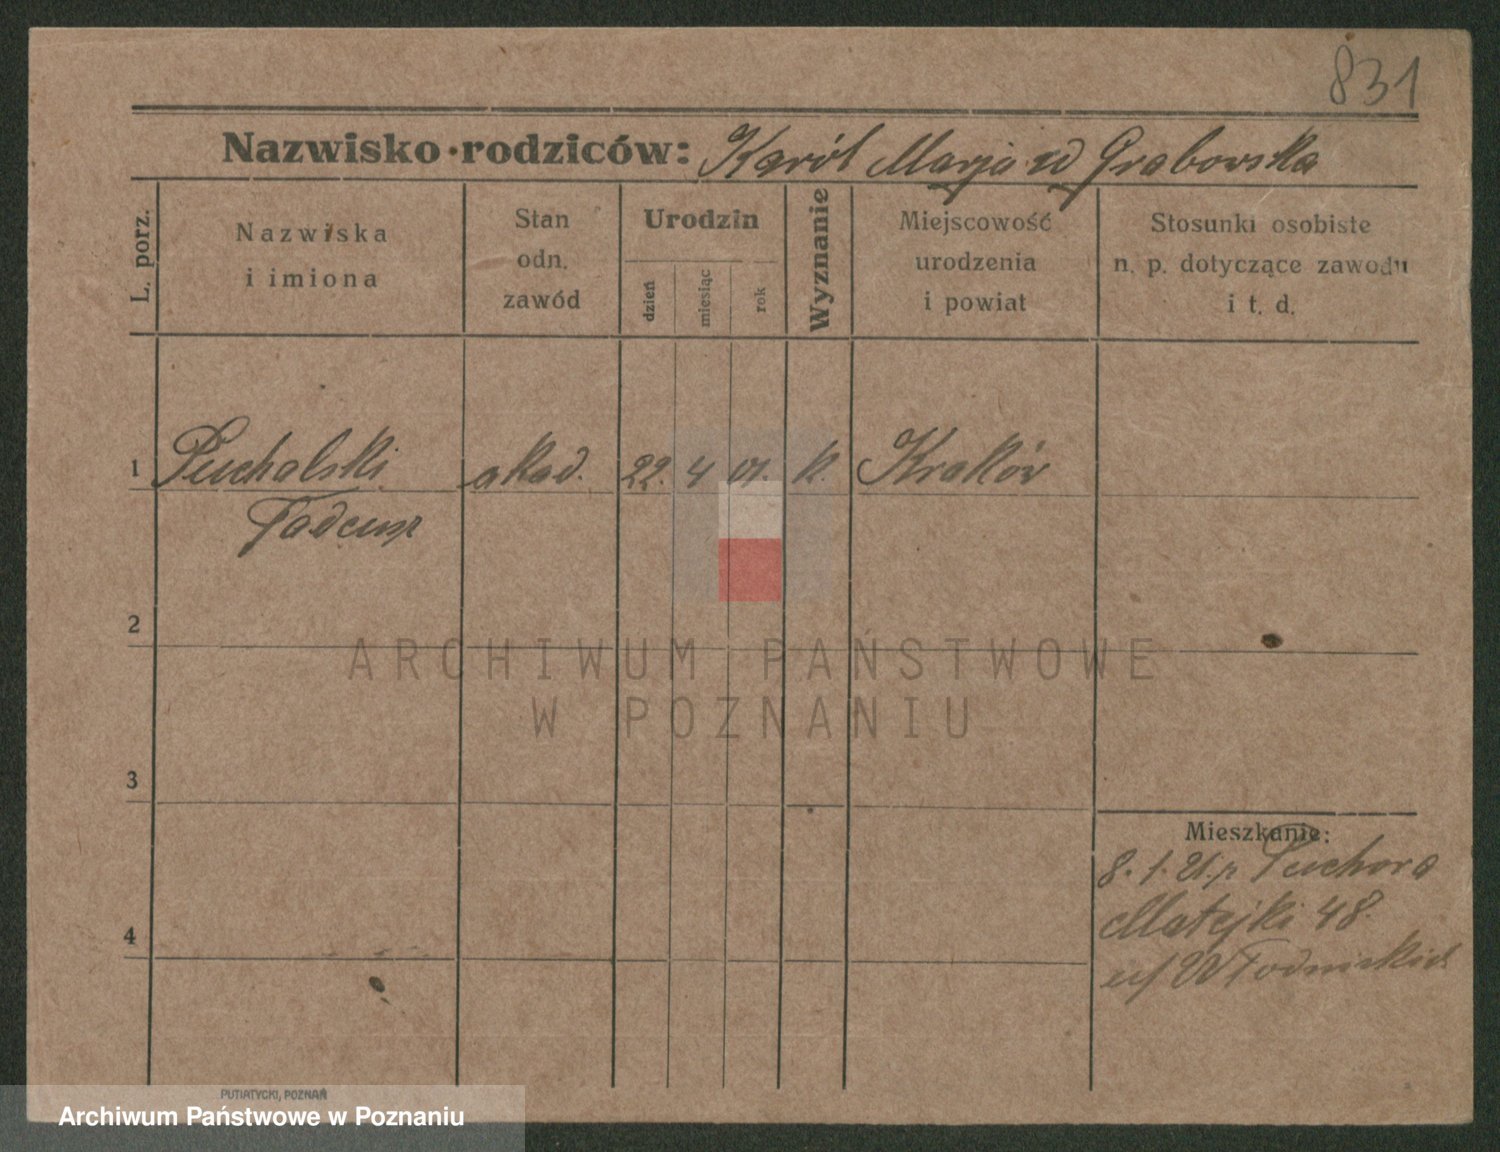 831
Nazwisko rodziców: Karól Marja zd Grabowska
L. porz.
Nazwiska
i imiona
Stan
odn.
zawód
Urodzin
dzień
miesiąc
rok
Wyznanie
Miejscowość
urodzenia
i powiat
Stosunki osobiste
n. p. dotyczące zawodu
i t. d.
1 Puchalski akad. 22. 4 01. k. Kraków
Tadeusz
2
ARCHIWUM PAŃSTWOWE
W POZNANIU
3
Mieszkanie:
8. 1. 21. p
Matejki 48.
4
u/
PUTIATYCKI, POZNAŃ
Archiwum Państwowe w Poznaniu